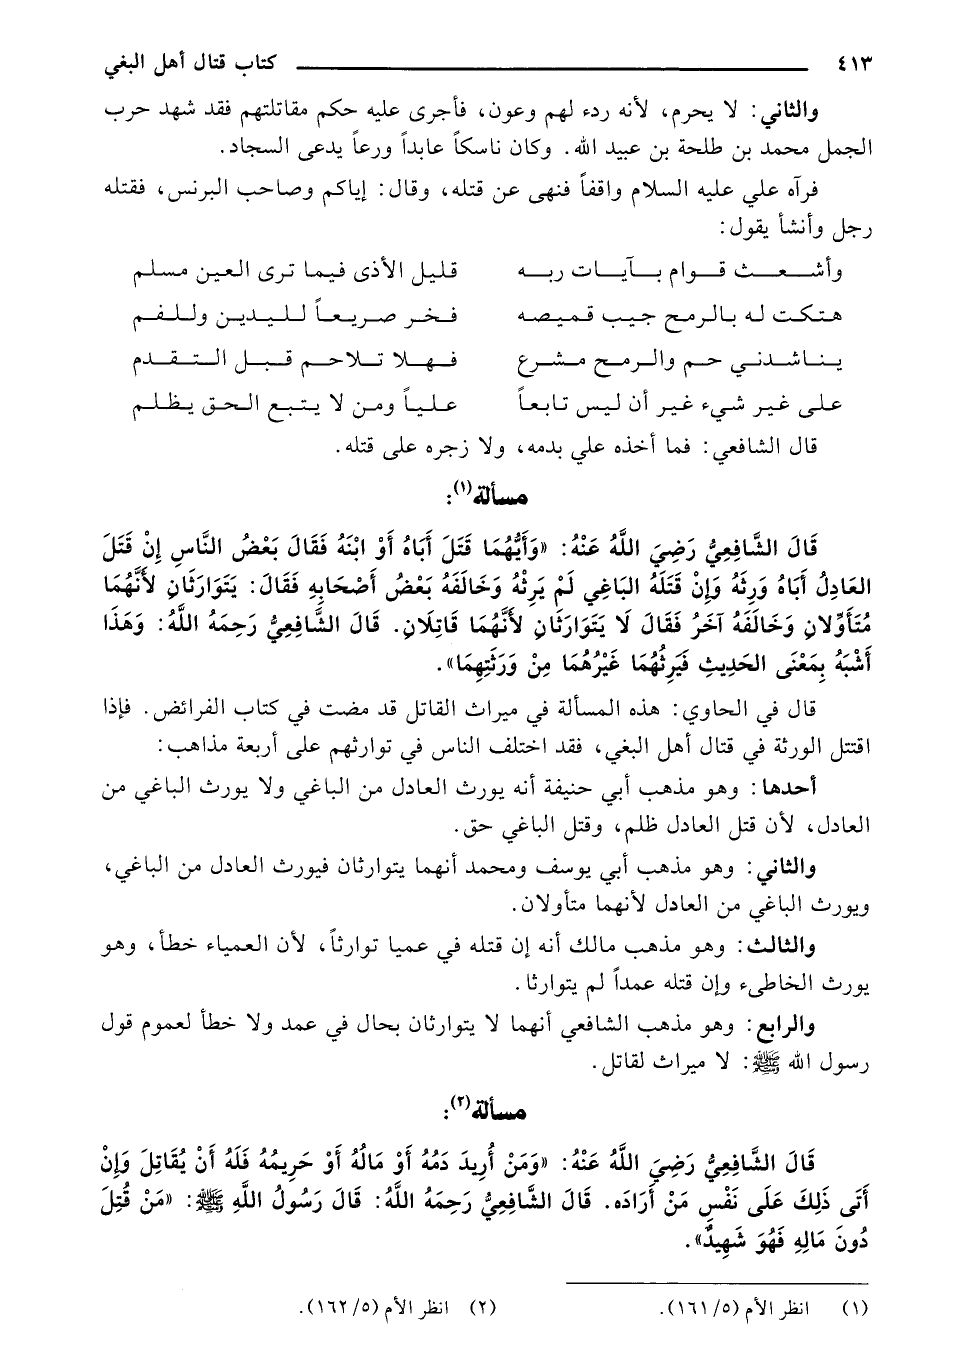 ٤١٣ كتاب قتال أهل البغي
والثاني: لا يحرم، لأنه ردء لهم وعون، فأجرى عليه حكم مقاتلتهم فقد شهد حرب
الجمل محمد بن طلحة بن عبيد الله. وكان ناسكاً عابداً ورعاً يدعى السجاد.
فرآه علي عليه السلام واقفاً فنهى عن قتله، وقال: إياكم وصاحب البرنس، فقتله
رجل وأنشأ يقول:
وأشعث قوام بآيات ربه قليل الأذى فيما ترى العين مسلم
هتكت له بالرمح جيب قميصه فخر صريعاً لليدين وللفم
يناشدني حم والرمح مشرع فهلا تلاحم قبل التقدم
على غير شيء غير أن ليس تابعاً علياً ومن لا يتبع الحق يظلم
قال الشافعي: فما أخذه علي بدمه، ولا زجره على قتله.
مسألة(١):
قَالَ الشَّافِعِيُّ رَضِيَ اللَّهُ عَنْهُ: «وَأَيُّهُمَا قَتَلَ أَبَاهُ أَوْ ابْنَهُ فَقَالَ بَعْضُ النَّاسِ إِنْ قَتَلَ
العَادِلُ أَبَاهُ وَرِثَهُ وَإِنْ قَتَلَهُ البَاغِي لَمْ يَرِثْهُ وَخَالَفَهُ بَعْضُ أَصْحَابِهِ فَقَالَ: يَتَوَارَثَانِ لأَنَّهُمَا
مُتَأَوِّلانِ وَخَالَفَهُ آخَرُ فَقَالَ لَا يَتَوَارَثَانِ لأَنَّهُمَا قَاتِلَانِ. قَالَ الشَّافِعِيُّ رَحِمَهُ اللَّهُ: وَهَذَا
أَشْبَهُ بِمَعْنَى الحَدِيثِ فَيَرِثُهُمَا غَيْرُهُمَا مِنْ وَرَثَتِهِمَا».
قال في الحاوي: هذه المسألة في ميراث القاتل قد مضت في كتاب الفرائض. فإذا
اقتتل الورثة في قتال أهل البغي، فقد اختلف الناس في توارثهم على أربعة مذاهب:
أحدها: وهو مذهب أبي حنيفة أنه يورث العادل من الباغي ولا يورث الباغي من
العادل، لأن قتل العادل ظلم، وقتل الباغي حق.
والثاني: وهو مذهب أبي يوسف ومحمد أنهما يتوارثان فيورث العادل من الباغي،
ويورث الباغي من العادل لأنهما متأولان.
والثالث: وهو مذهب مالك أنه إن قتله في عميا توارثاً، لأن العمياء خطأ، وهو
يورث الخاطىء وإن قتله عمداً لم يتوارثا.
والرابع: وهو مذهب الشافعي أنهما لا يتوارثان بحال في عمد ولا خطأ لعموم قول
رسول الله ﷺ: لا ميراث لقاتل.
مسألة(٢):
قَالَ الشَّافِعِيُّ رَضِيَ اللَّهُ عَنْهُ: «وَمَنْ أُرِيدَ دَمُهُ أَوْ مَالُهُ أَوْ حَرِيمُهُ فَلَهُ أَنْ يُقَاتِلَ وَإِنْ
أَتَى ذَلِكَ عَلَى نَفْسِ مَنْ أَرَادَه. قَالَ الشَّافِعِيُّ رَحِمَهُ اللَّهُ: قَالَ رَسُولُ اللَّهِ ﷺ: «مَنْ قُتِلَ
دُونَ مَالِهِ فَهُوَ شَهِيدٌ».
(١) انظر الأم (٥/ ١٦١). (٢) انظر الأم (٥/ ١٦٢).